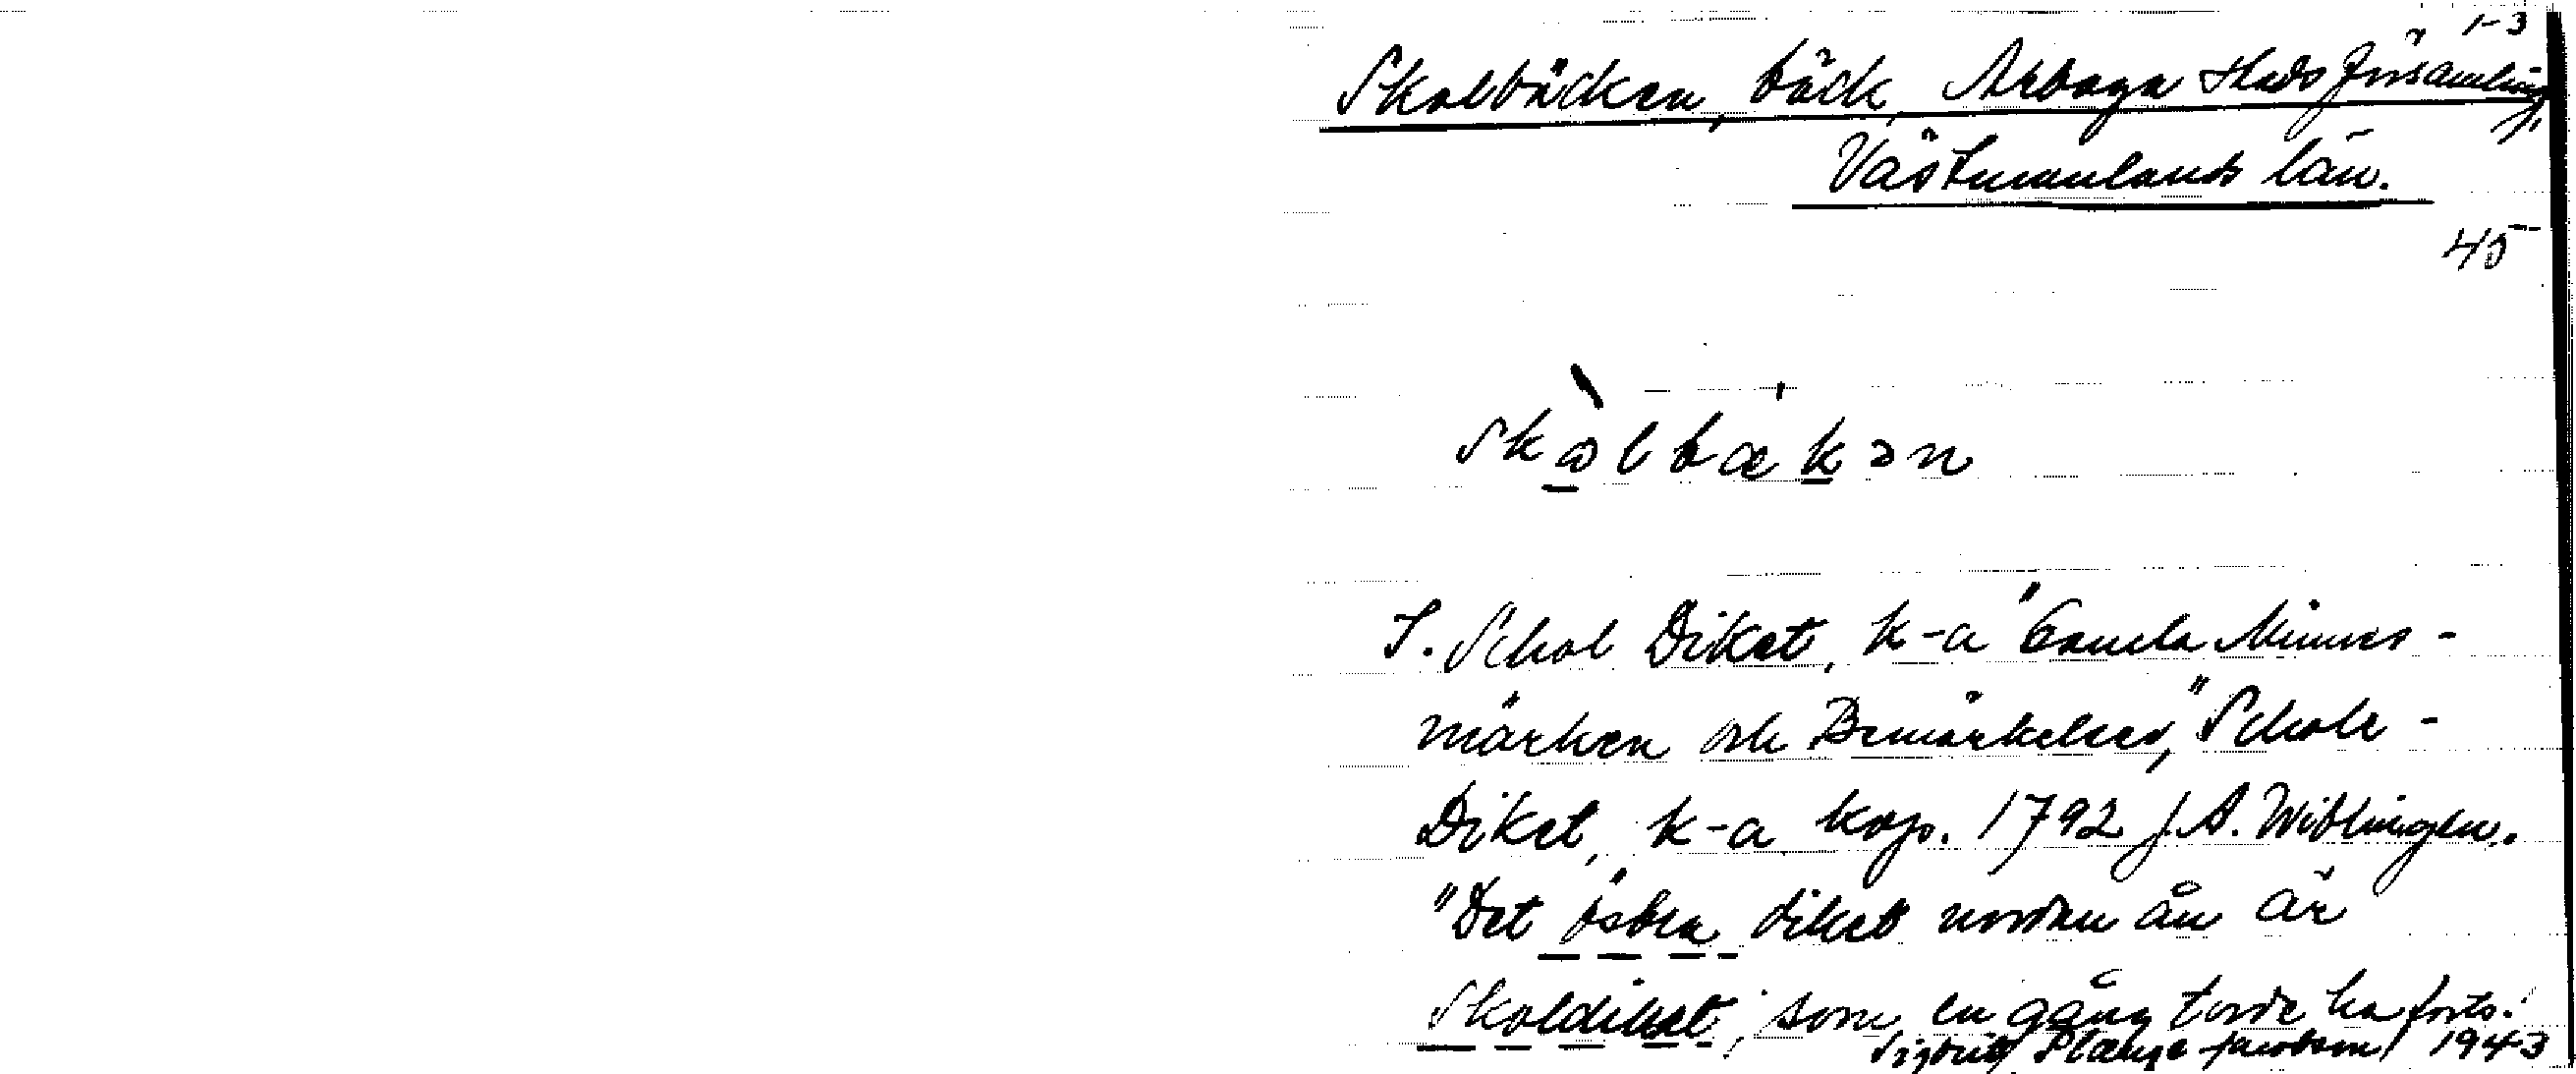 1-3
Skolbäcken, bäck, Arboga stads församling,
Västmanlands län.
45
skɷ̀lbækən
S. Schol Diket, k-a "Gamla Minnes-
märken och Bemärkelser," Schole-
Diket, k-a kop. 1792 f. A. Wiblingen.
"Det östra diket nordan ån är
Skoldiket, som en gång torde ha forts.
Sigbrit Plænge Jacobson 1943